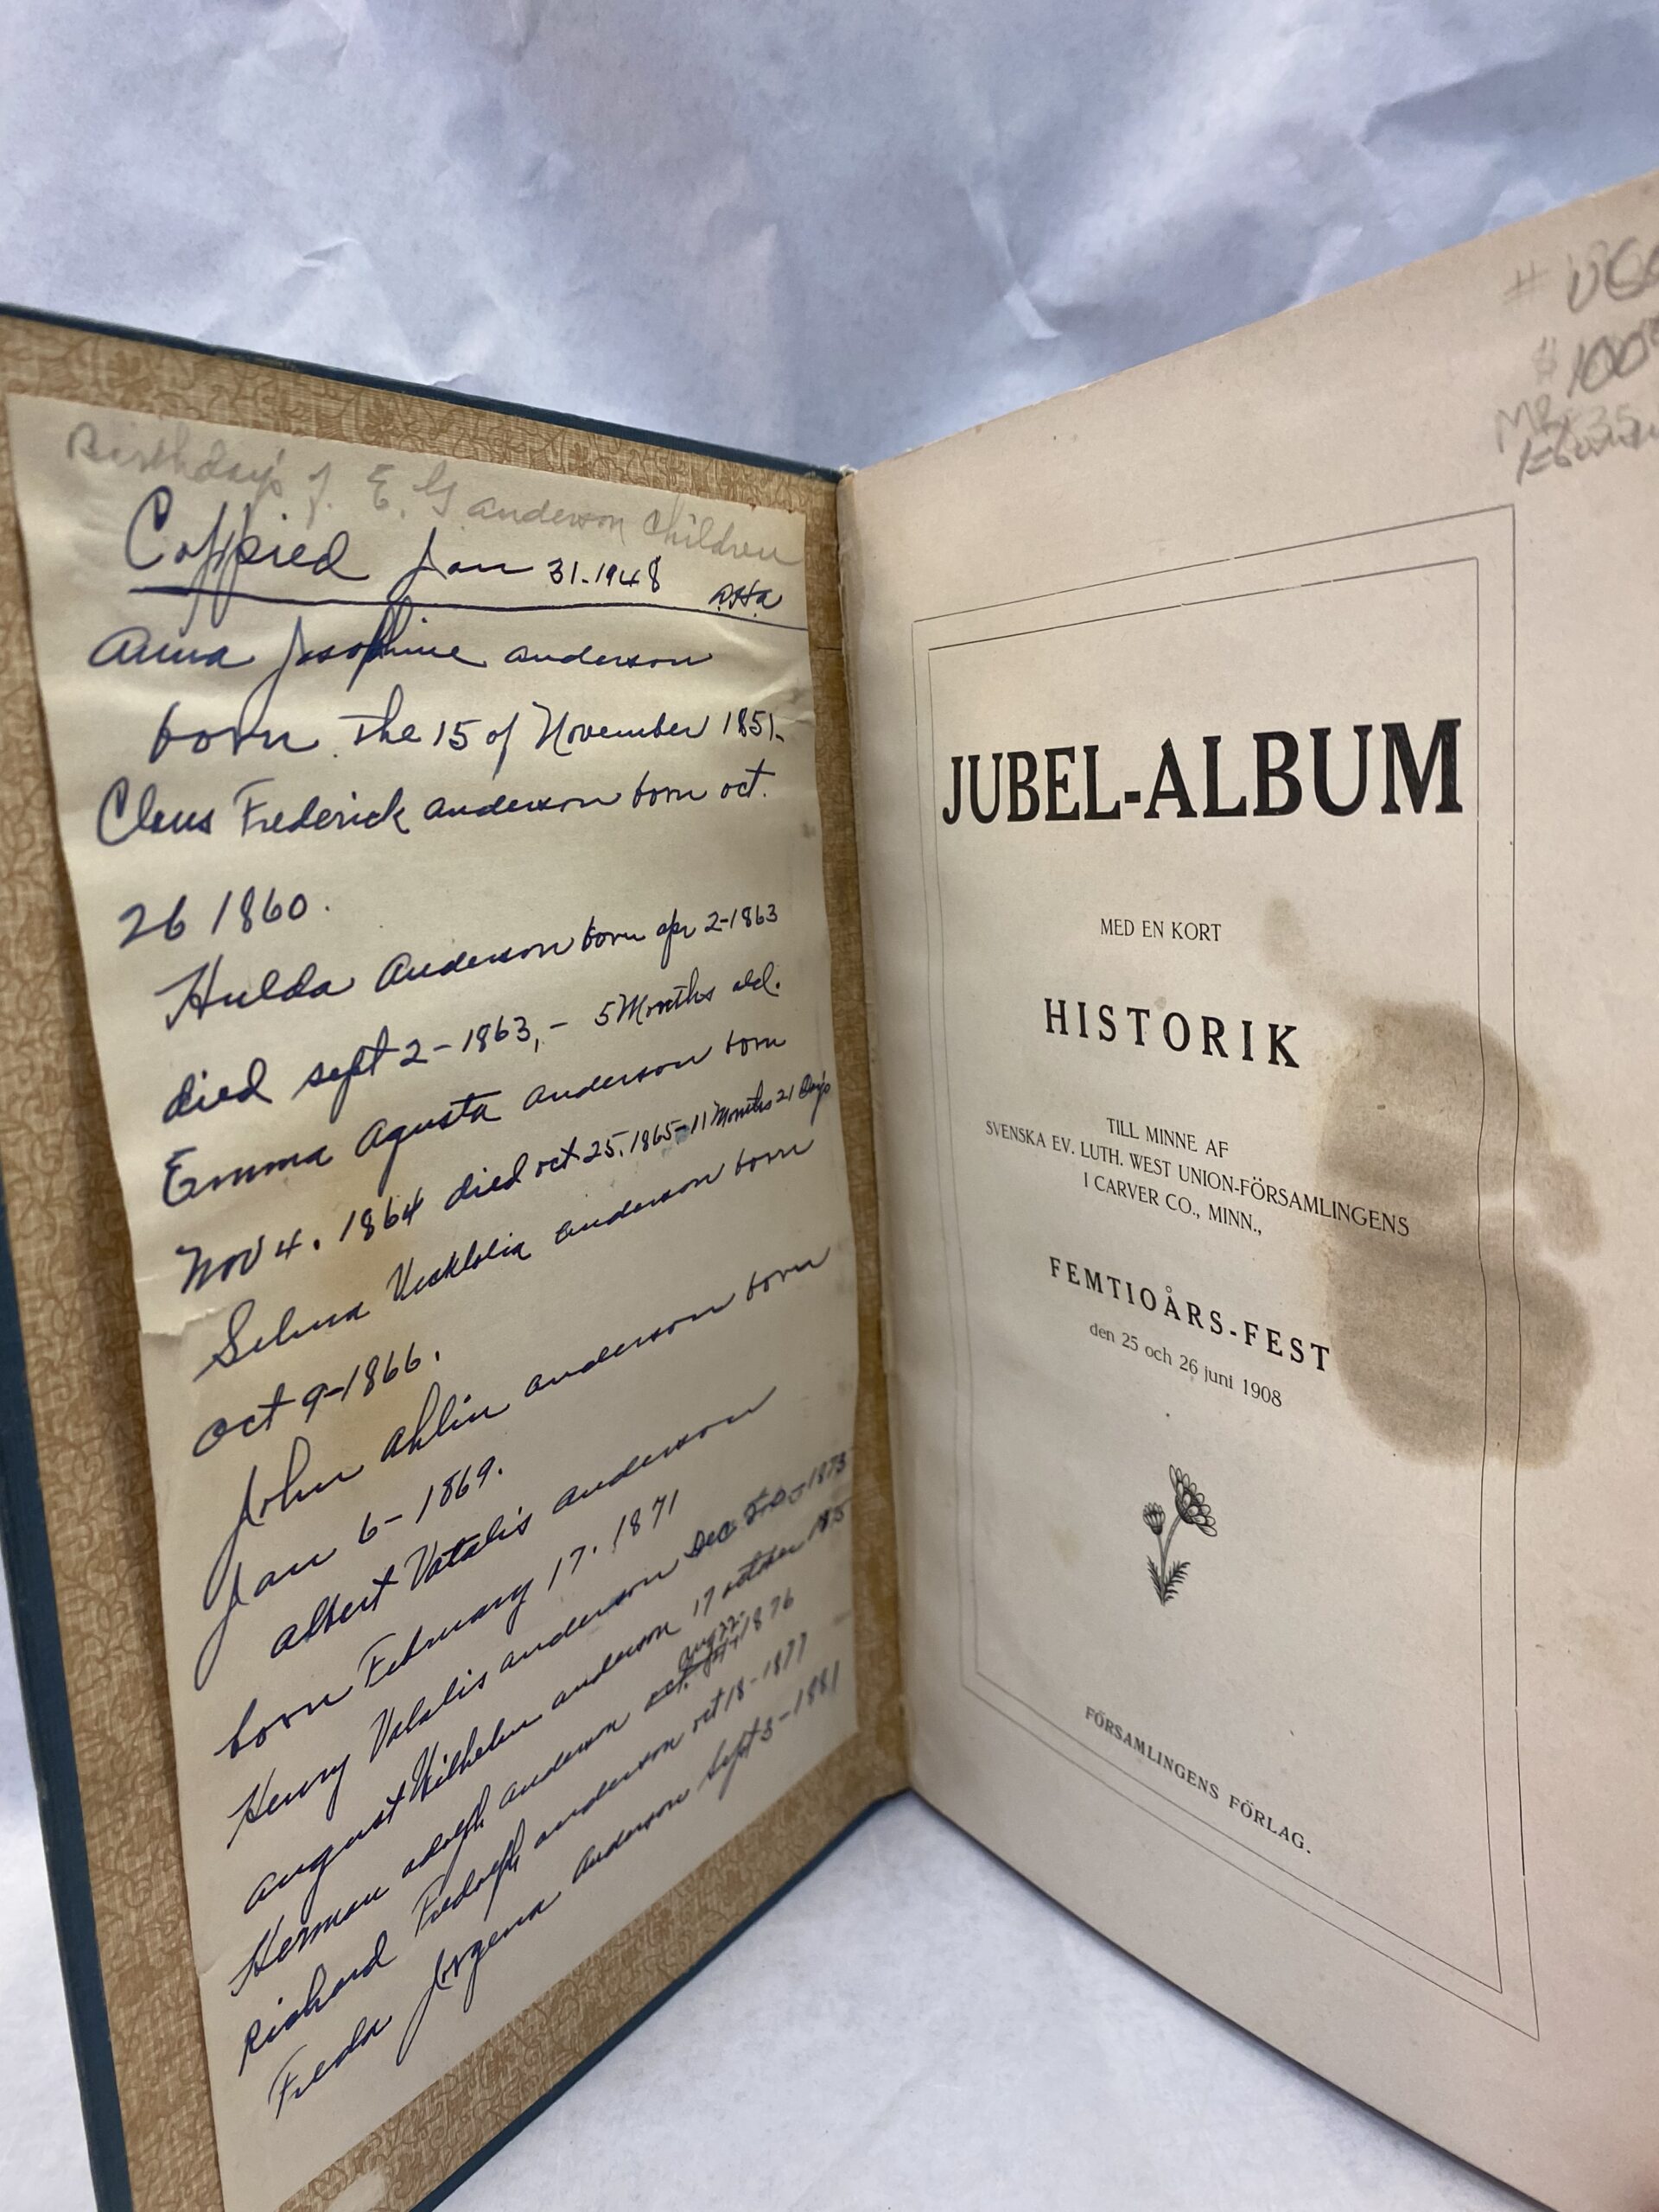 Birthday's of E. G. anderson Children
Coppied Jan 31-1948
Anna Josophine anderson
born the 15 of November 1851-
Claus Frederick anderson born oct.
26 1860.
Hulda Anderson born apr 2-1863
died sept 2-1863,- 5 Months old.
Emma Agusta anderson born
Nov 4. 1864 died oct 25. 1865-11 Months 21 Days
Selma anderson born
oct 9-1866.
John ahlin anderson born
Jan 6-1869.
albert Vatalis anderson
born February 17. 1871
Henry Vatalis anderson Dec 1873
august Wilhelm anderson 17 october
Herman adolph anderson aug 22 1876
Richard anderson oct 18-1877
Freda Jorgena Anderson Sept 3-1881
JUBEL-ALBUM
MED EN KORT
HISTORIK
TILL MINNE AF
SVENSKA EV. LUTH. WEST UNION-FÖRSAMLINGENS
I CARVER CO., MINN.,
FEMTIOÅRS-FEST
den 25 och 26 juni 1908
FÖRSAMLINGENS FÖRLAG.